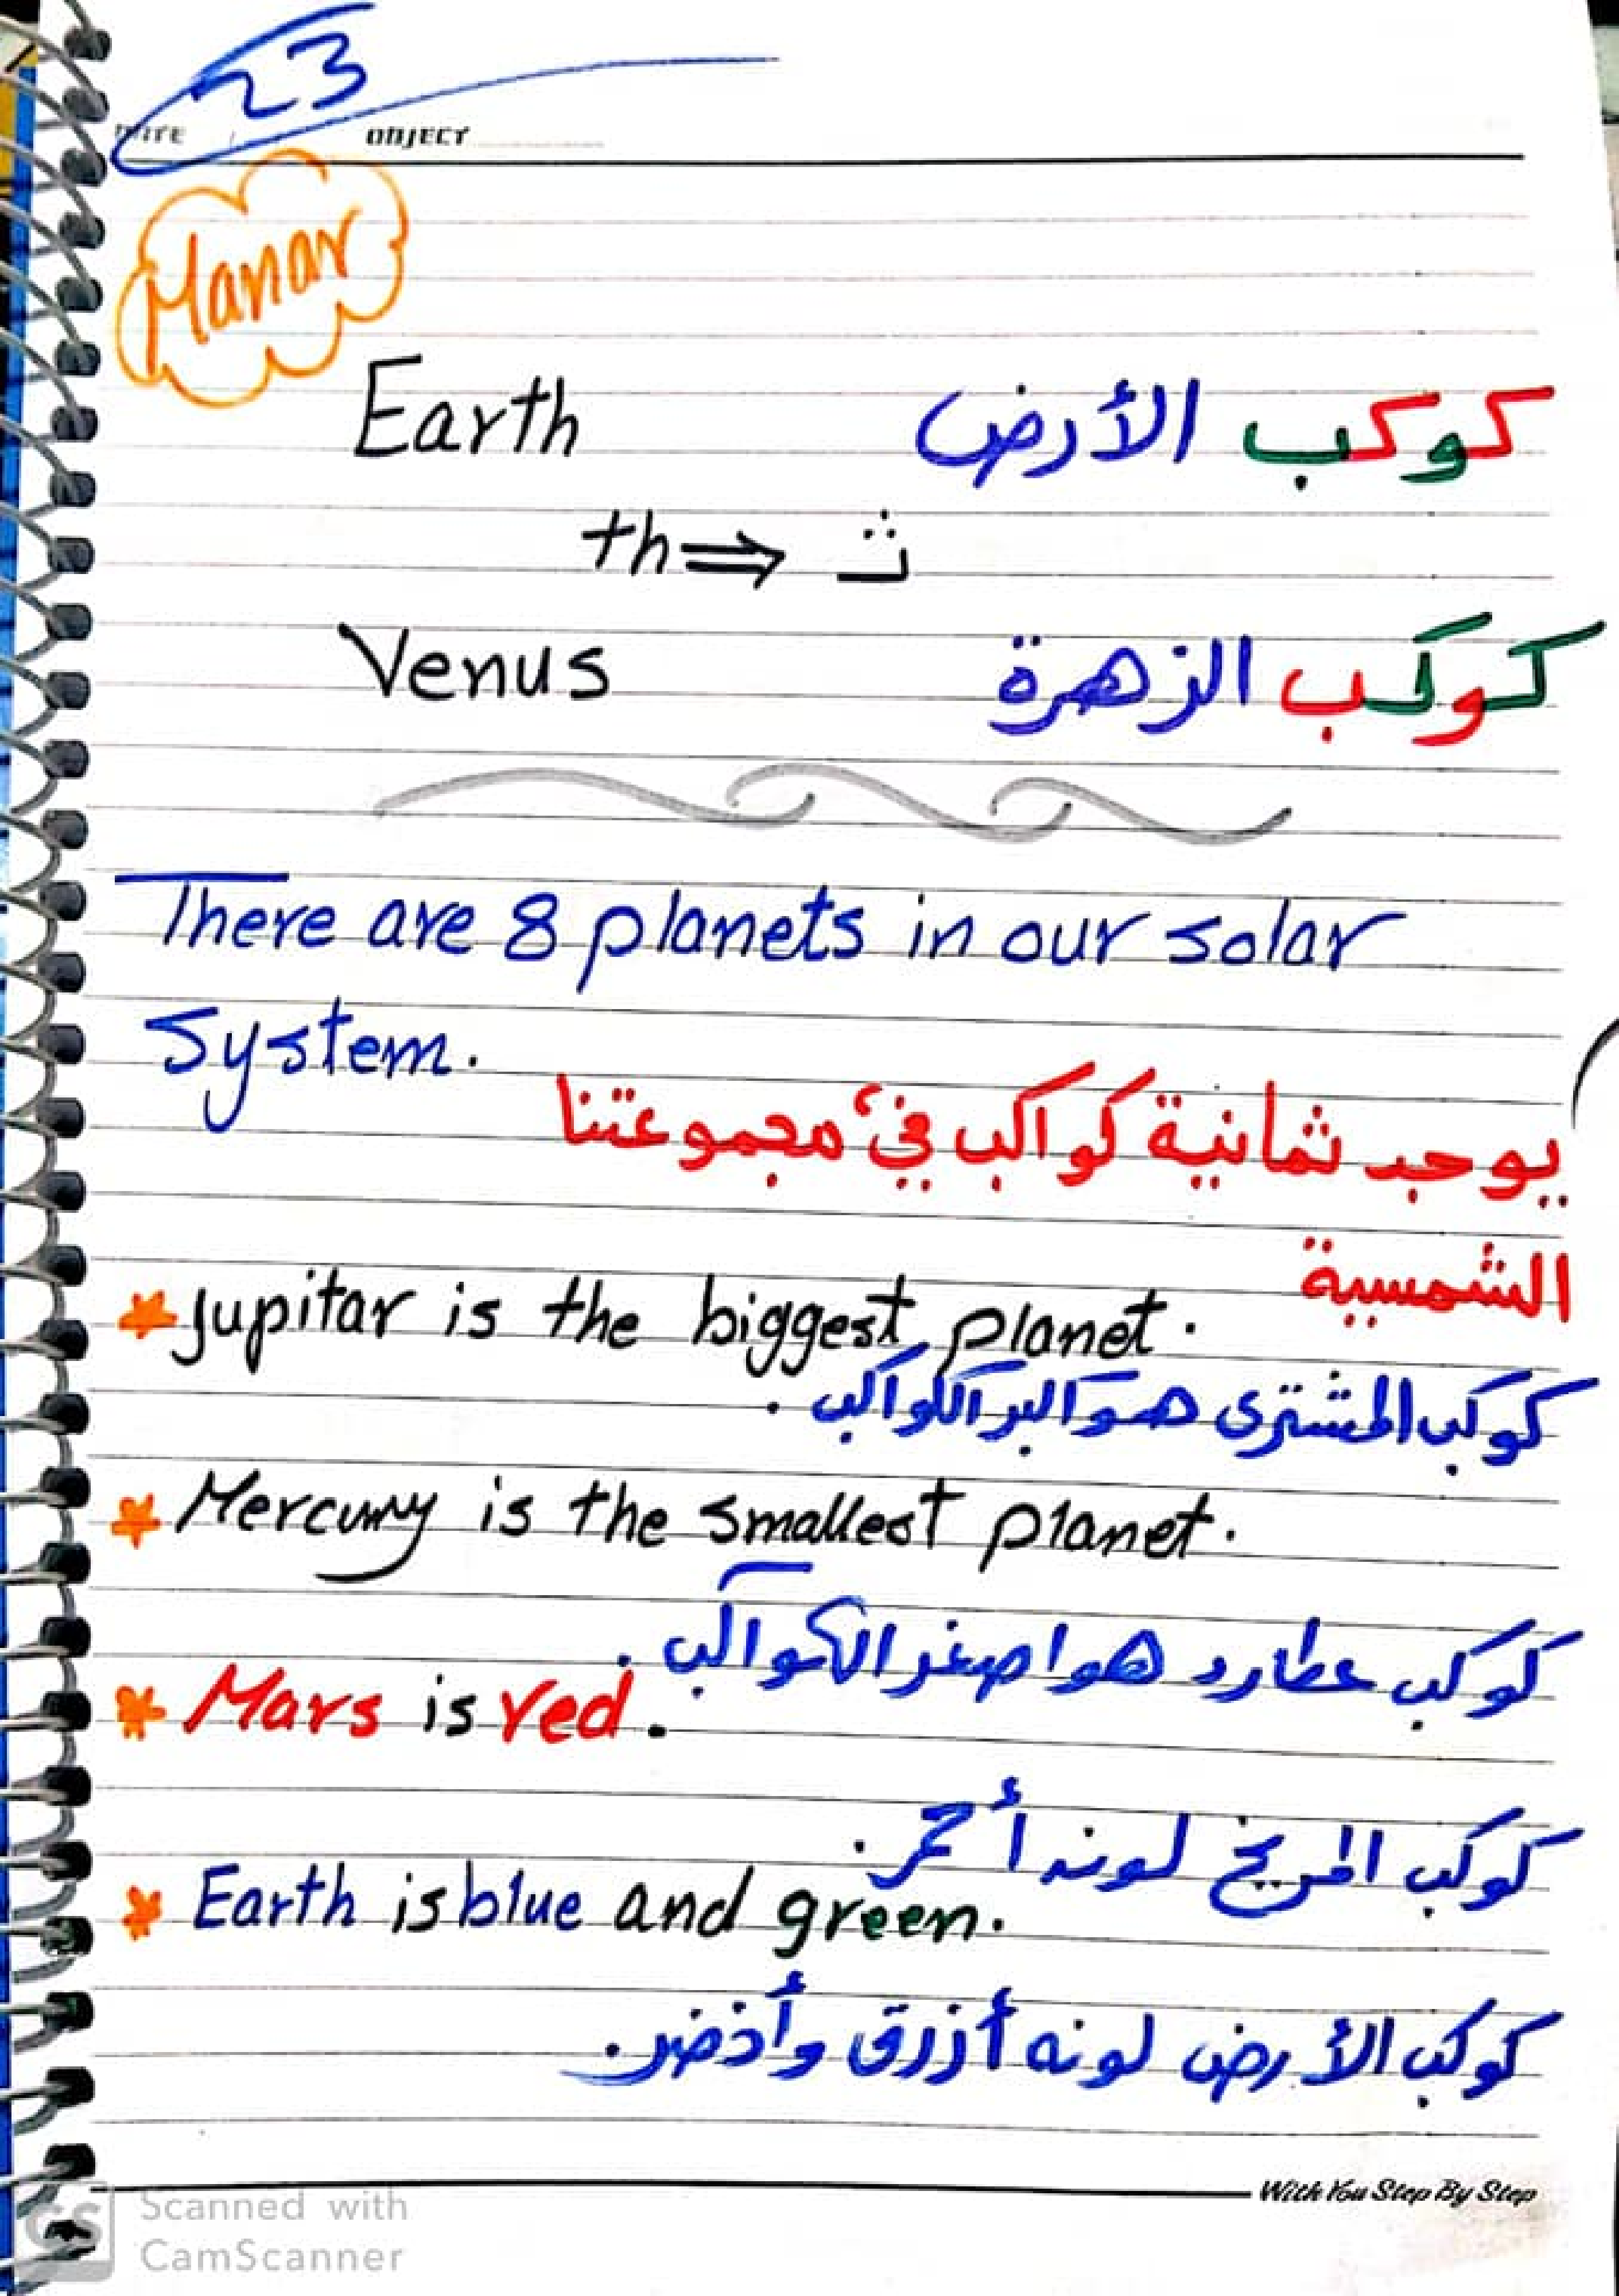 23
DATE / OBJECT
Manar
Earth كوكب الأرض
th ⇒ ث
Venus كوكب الزهرة
There are 8 planets in our solar
System.
يوجد ثمانية كواكب في مجموعتنا
الشمسية
* Jupitar is the biggest planet.
كوكب المشترى هو اكبر الكواكب .
* Mercury is the smallest planet.
كوكب عطارد هو اصغر الكواكب .
* Mars is red.
كوكب المريخ لونه أحمر .
* Earth is blue and green.
كوكب الأرض لونه أزرق وأخضر .
With You Step By Step
CS Scanned with
CamScanner